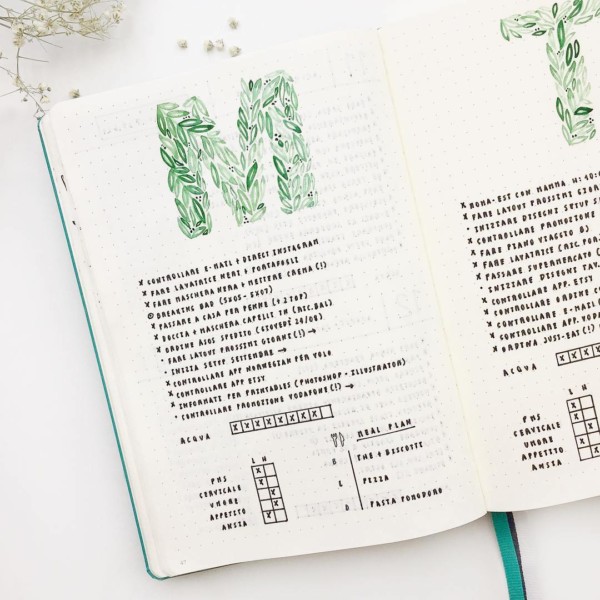 M
x CONTROLLARE E-MAIL + DIRECT INSTAGRAM
x FARE LAVATRICE NERI + PORTAFOGLI
x FARE MASCHERA NERA + METTERE CREMA (!)
BREAKING BAD (5X05 - 5X07)
x PASSARE A CASA PER PENNE (+ 2 TOP)
x DOCCIA + MASCHERA CAPELLI IN (RIC. BAL)
x ORDINE ASOS SPEDITO (GIOVEDÌ 24/08)
• FARE LAYOUT PROSSIMI GIORNI (!) →
• INIZIA SETUP SETTEMBRE →
x CONTROLLARE APP NORWEGIAN PER VOLO
x CONTROLLARE APP ETSY
x INFORMATI PER PRINTABLES (PHOTOSHOP - ILLUSTRATOR)
• CONTROLLARE PROMOZIONE VODAFONE (!) →
ACQUA x x x x x x x
L H
PMS
CERVICALE
UMORE
APPETITO
ANSIA
MEAL PLAN
THE + BISCOTTI
PIZZA
D PASTA POMODORO
T
x ROMA-EST CON MAMMA
x FARE LAYOUT PROSSIMI
• INIZIARE DISEGNI SETUP
x CONTROLLARE PROMOZIONE
x FARE PIANO VIAGGIO
x FARE LAVATRICE
x PASSARE SUPERMERCATO
• INIZIARE DISEGNI
x CONTROLLARE APP. ETSY
x CONTROLLARE ORDINE
x CONTROLLARE E-MAIL
x CONTROLLARE APP.
x ORDINA JUST-EAT (!)
ACQUA x x x
L H
PMS
CERVICALE
UMORE
APPETITO
ANSIA